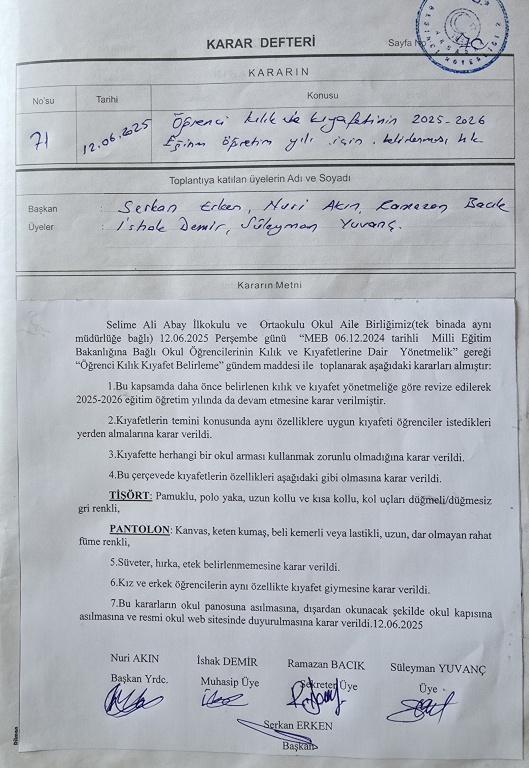 KARAR DEFTERİ
Sayfa No
KARARIN
No'su
Tarihi
Konusu
71
12.06.2025
Öğrenci kılık ve kıyafetinin 2025-2026
Eğitim öğretim yılı için belirlenmesi hk
Toplantıya katılan üyelerin Adı ve Soyadı
Başkan : Serkan Erken, Nuri Akın, Ramazan Bacık
Üyeler : İshak Demir, Süleyman Yuvanç.
Kararın Metni
Selime Ali Abay İlkokulu ve Ortaokulu Okul Aile Birliğimiz(tek binada aynı
müdürlüğe bağlı) 12.06.2025 Perşembe günü "MEB 06.12.2024 tarihli Milli Eğitim
Bakanlığına Bağlı Okul Öğrencilerinin Kılık ve Kıyafetlerine Dair Yönetmelik" gereği
"Öğrenci Kılık Kıyafet Belirleme" gündem maddesi ile toplanarak aşağıdaki kararları almıştır:
1.Bu kapsamda daha önce belirlenen kılık ve kıyafet yönetmeliğe göre revize edilerek
2025-2026 eğitim öğretim yılında da devam etmesine karar verilmiştir.
2.Kıyafetlerin temini konusunda aynı özelliklere uygun kıyafeti öğrenciler istedikleri
yerden almalarına karar verildi.
3.Kıyafette herhangi bir okul arması kullanmak zorunlu olmadığına karar verildi.
4.Bu çerçevede kıyafetlerin özellikleri aşağıdaki gibi olmasına karar verildi.
TİŞÖRT: Pamuklu, polo yaka, uzun kollu ve kısa kollu, kol uçları düğmeli/düğmesiz
gri renkli,
PANTOLON: Kanvas, keten kumaş, beli kemerli veya lastikli, uzun, dar olmayan rahat
füme renkli,
5.Süveter, hırka, etek belirlenmemesine karar verildi.
6.Kız ve erkek öğrencilerin aynı özellikte kıyafet giymesine karar verildi.
7.Bu kararların okul panosuna asılmasına, dışardan okunacak şekilde okul kapısına
asılmasına ve resmi okul web sitesinde duyurulmasına karar verildi.12.06.2025
Nuri AKIN İshak DEMİR Ramazan BACIK Süleyman YUVANÇ
Başkan Yrdc. Muhasip Üye Sekreter Üye Üye
Serkan ERKEN
Başkan